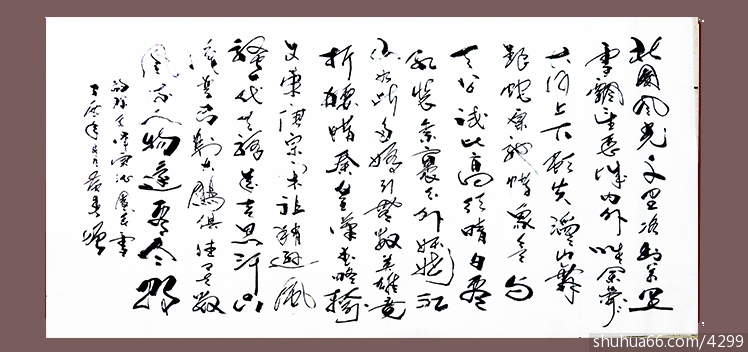 北国风光千里冰封万里
雪飘望长城内外惟余莽々
大河上下顿失滔々山舞
银蛇原驰蜡象欲与
天公试比高须晴日看
红装素裹分外妖娆江
山如此多娇引无数英雄竞
折腰惜秦皇汉武略输
文采唐宗宋祖稍逊风
骚一代天骄成吉思汗只
识弯弓射大雕俱往矣数
风流人物还看今朝
毛泽东沁园春雪
shuhua66.com/4299